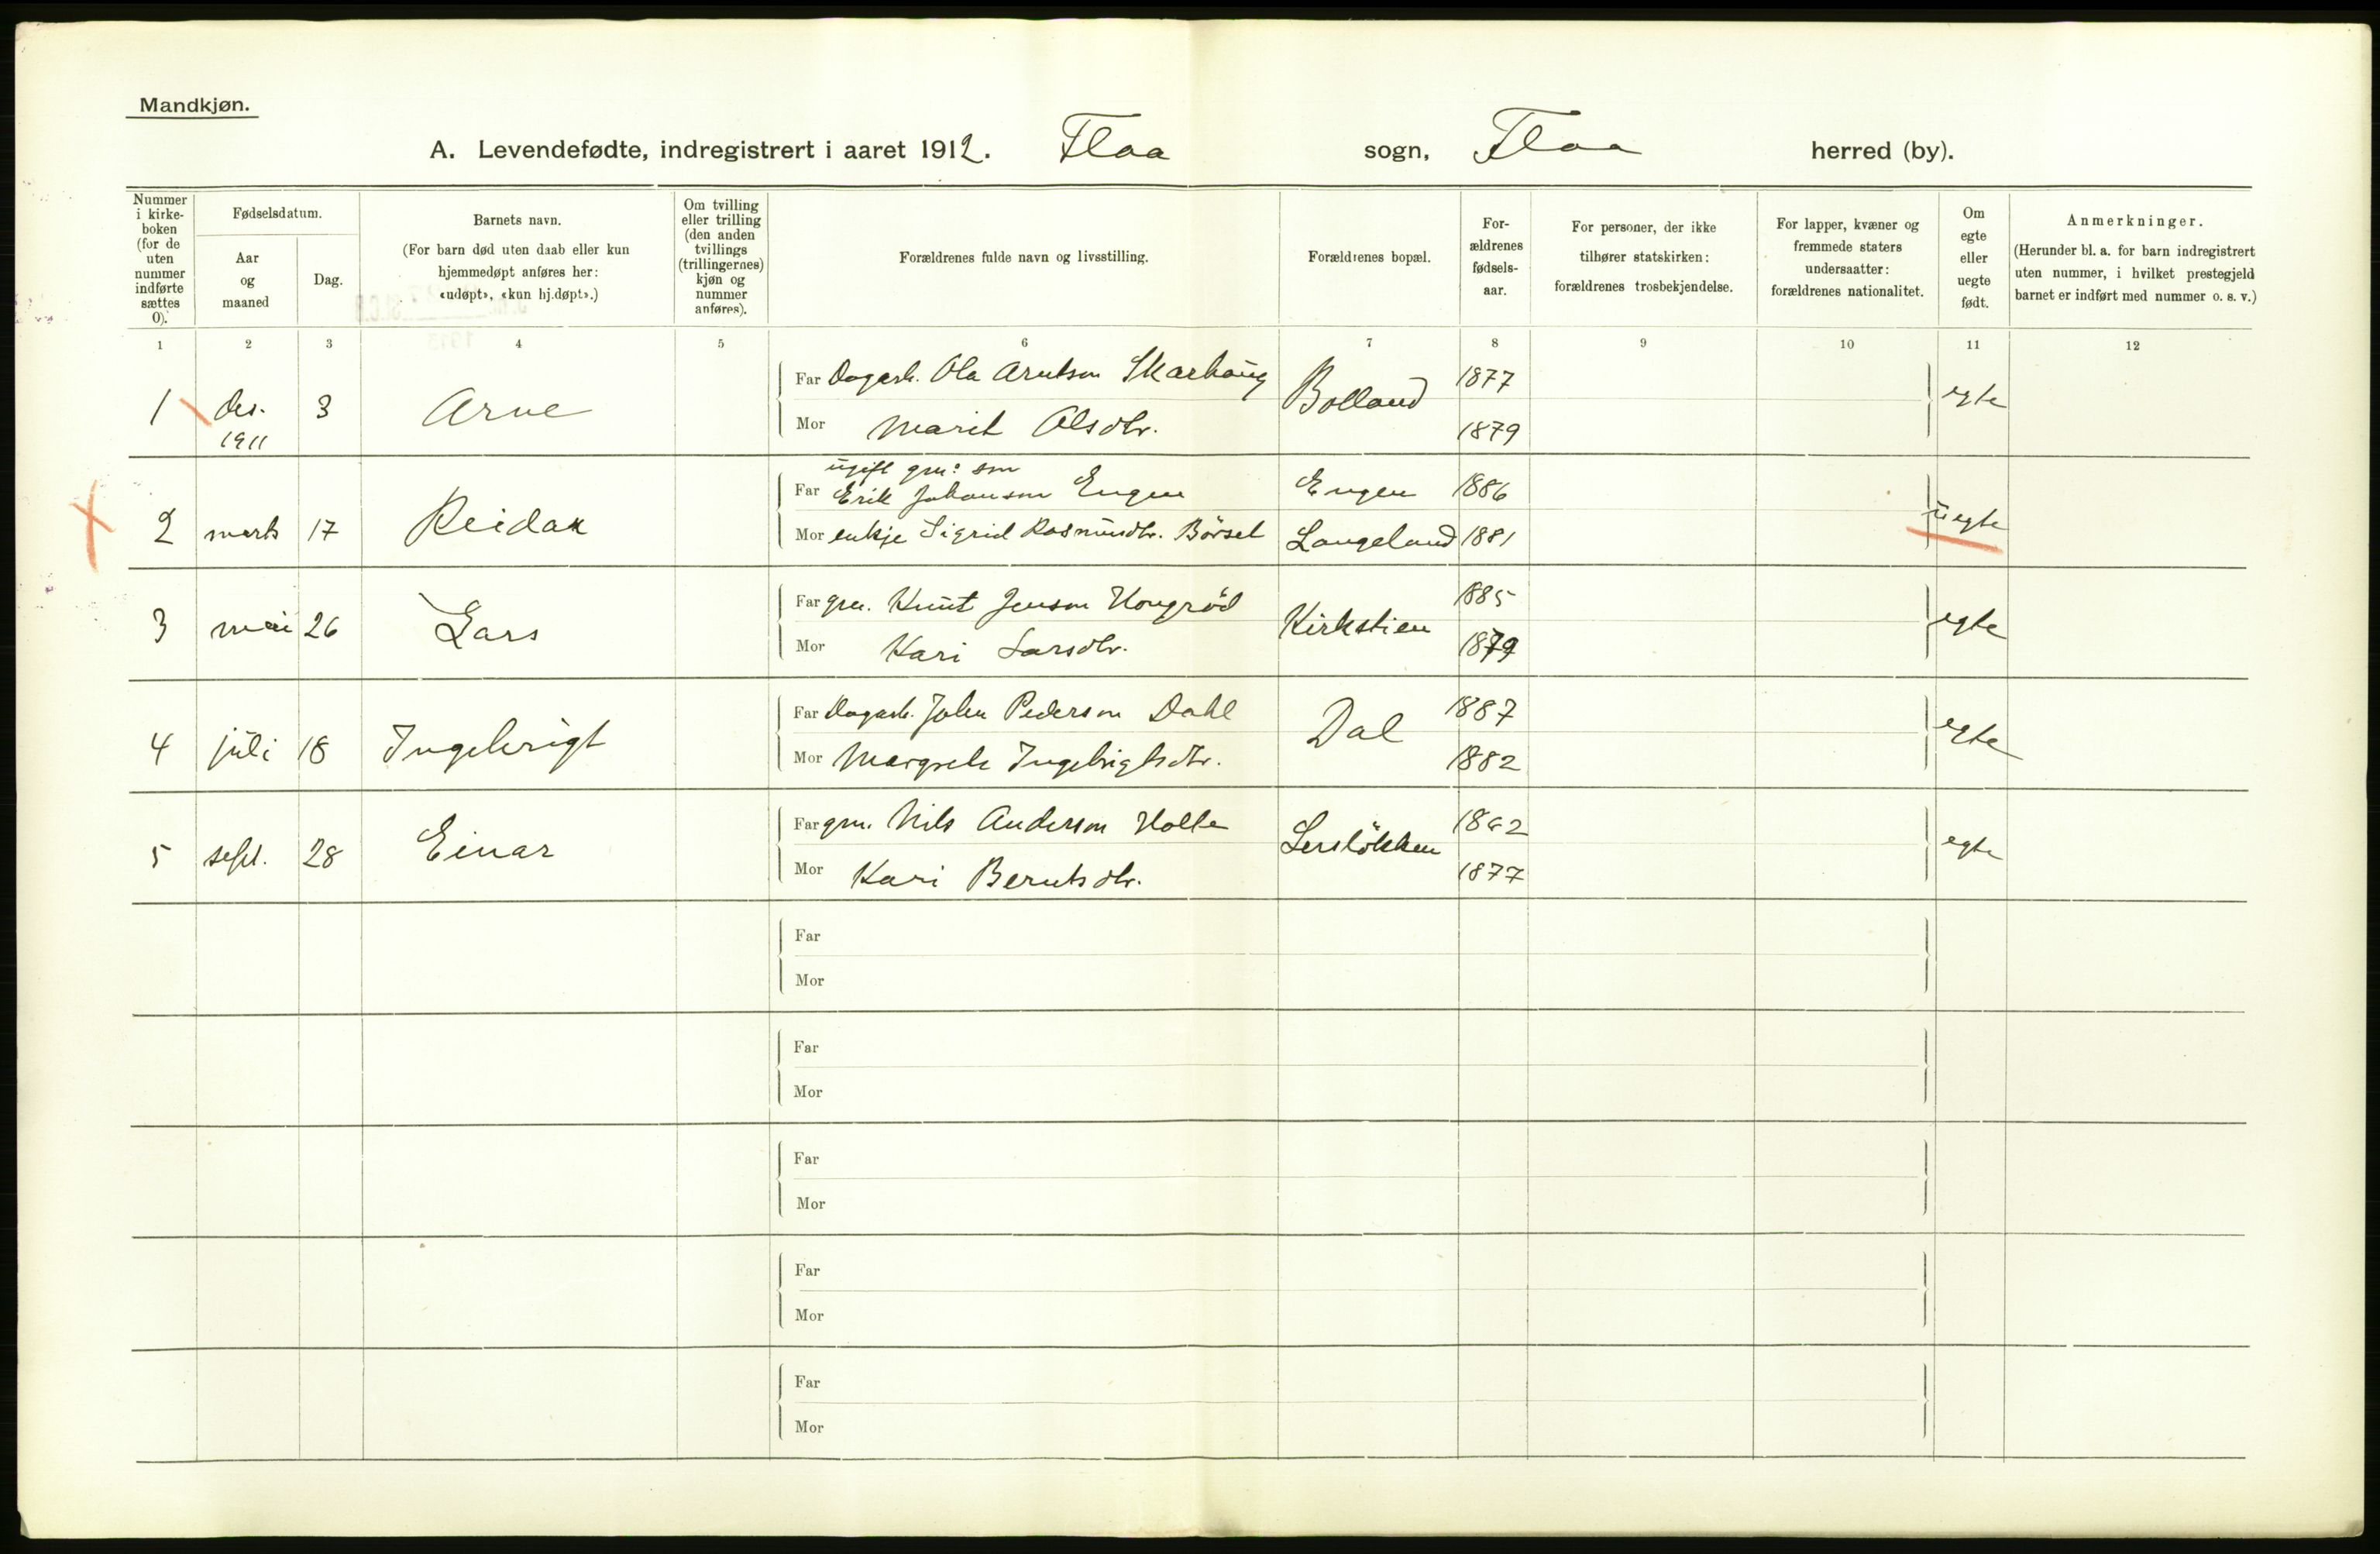 Mandkjøn.
A. Levendefødte, indregistrert i aaret 1912. Flaa sogn, Flaa herred (by).
Nummer i kirke-boken (for de uten nummer indførte sættes 0).
Fødselsdatum.
Aar og maaned
Dag.
Barnets navn.
(For barn død uten daab eller kun hjemmedøpt anføres her: «udøpt», «kun hj.døpt».)
Om tvilling eller trilling (den anden tvillings (trillingernes) kjøn og nummer anføres).
Forældrenes fulde navn og livsstilling.
Forældrenes bopæl.
For-ældrenes fødsels-aar.
For personer, der ikke tilhører statskirken: forældrenes trosbekjendelse.
For lapper, kvæner og fremmede staters undersaatter: forældrenes nationalitet.
Om egte eller uegte født.
Anmerkninger.
(Herunder bl. a. for barn indregistrert uten nummer, i hvilket prestegjeld barnet er indført med nummer o. s. v.)
1 2 3 4 5 6 7 8 9 10 11 12
Far Dagarb. Ola Arntson Skarhaug 1877
1 des. 1911 3 Arne Bolland egte
Mor Marit Olsdtr. 1879
ugift grn: søn
Far Erik Johanson Engen Engen 1886
2 marts 17 Reidar uegte
Mor enkje Sigrid Rasmusdtr. Börset Langeland 1881
Far grn. Knut Jenson 1885
3 mai 26 Lars Kirkstien egte
Mor Kari Larsdtr. 1879
Far Dagarb. John Pederson Dahl 1887
4 juli 18 Ingebrigt Dal egte
Mor Margrete Ingebrigtsdtr. 1882
Far grn. Nils Anderson Holte 1862
5 sept. 28 Einar Lerslökken egte
Mor Kari Berntsdtr. 1877
Far
Mor
Far
Mor
Far
Mor
Far
Mor
Far
Mor